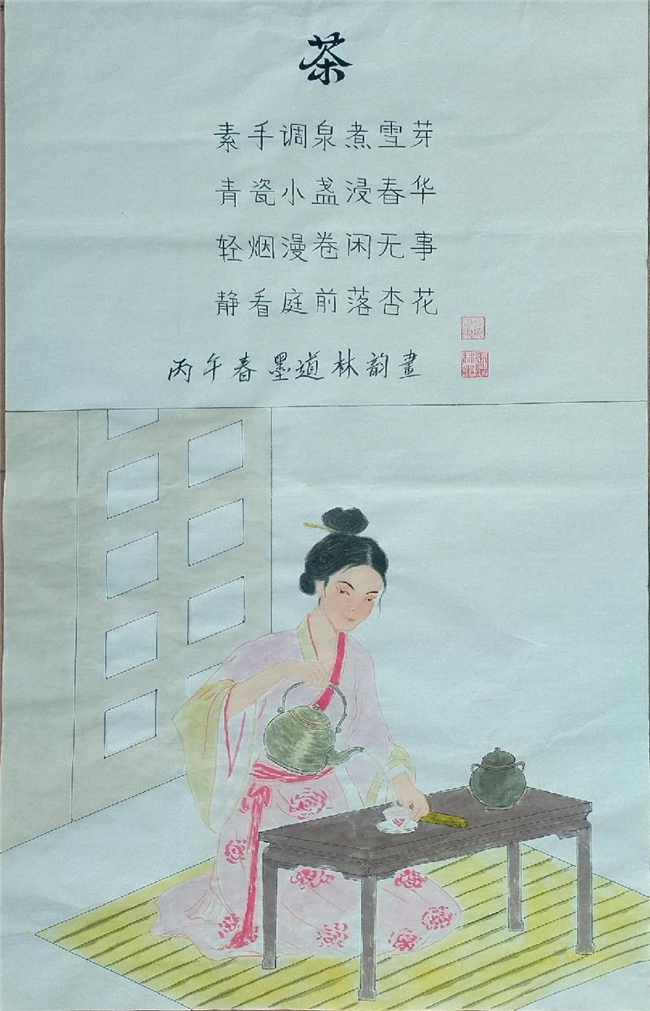 茶
素手调泉煮雪芽
青瓷小盏浸春华
轻烟漫卷闲无事
静看庭前落杏花
丙午春墨道林韵畫